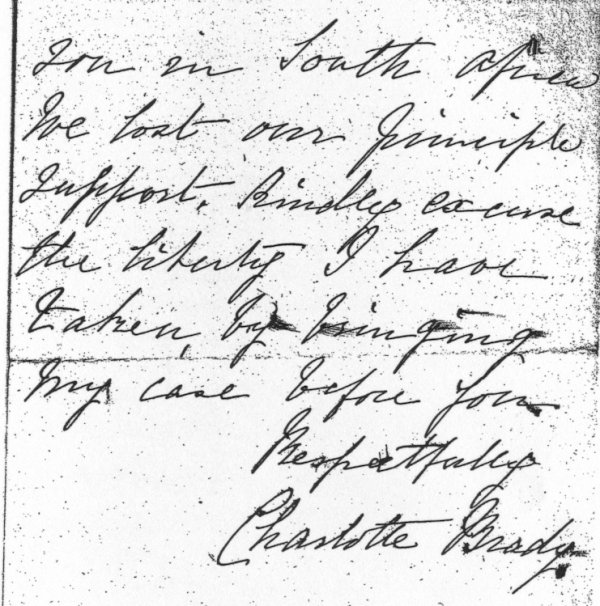 son in South Africa
We lost our principle
support. Kindly excuse
the liberty I have
taken, by bringing
my case before you
Respectfully
Charlotte Brady